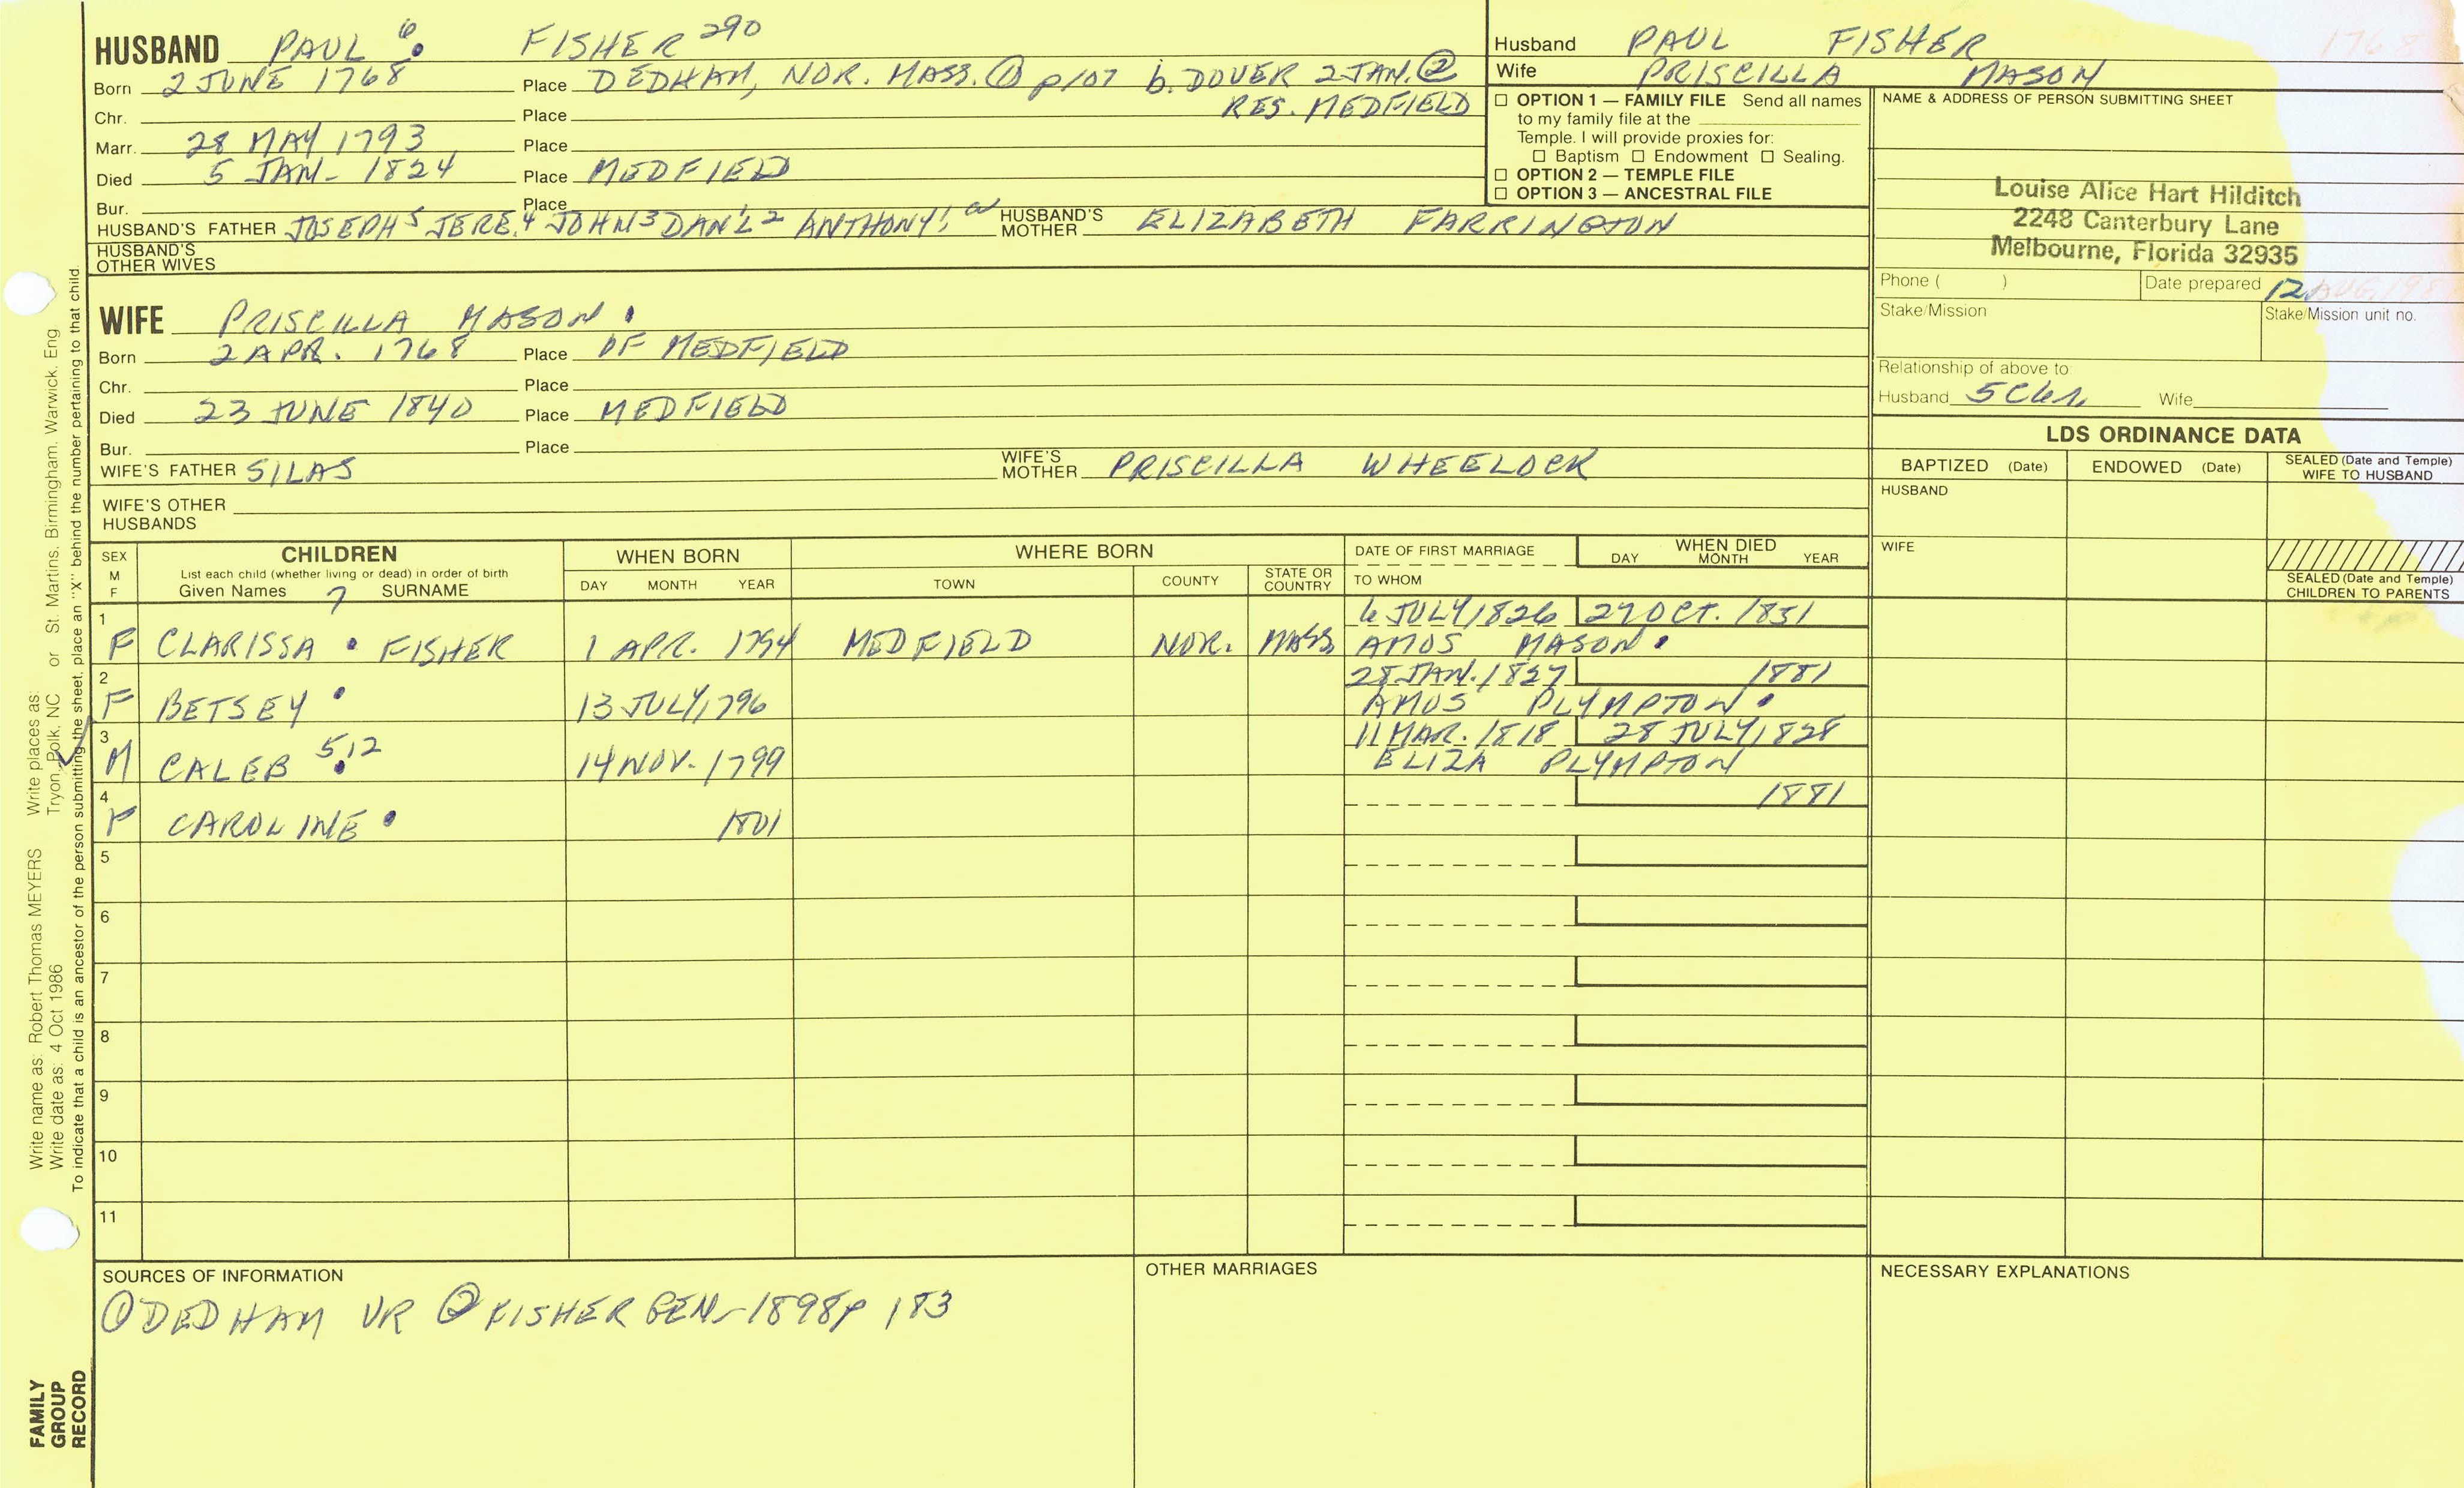 HUSBAND PAUL 6 FISHER 290
Born 2 JUNE 1768 Place DEDHAM, NOR. MASS. ① p107 b. DOVER 2 JAN. ②
RES. MEDFIELD
Chr. Place
Marr. 28 MAY 1793 Place
Died 5 JAN- 1824 Place MEDFIELD
Bur. Place
HUSBAND'S FATHER JOSEPH5 JERE.4 JOHN3 DAN'L2 ANTHONY1 HUSBAND'S MOTHER ELIZABETH FARRINGTON
HUSBAND'S OTHER WIVES
WIFE PRISCILLA MASON
Born 2 APR. 1768 Place OF MEDFIELD
Chr. Place
Died 23 JUNE 1840 Place MEDFIELD
Bur. Place
WIFE'S FATHER SILAS WIFE'S MOTHER PRISCILLA WHEELOCK
WIFE'S OTHER HUSBANDS
Husband PAUL FISHER 1768
Wife PRISCILLA MASON
☐ OPTION 1 — FAMILY FILE Send all names
to my family file at the
Temple. I will provide proxies for:
☐ Baptism ☐ Endowment ☐ Sealing.
☐ OPTION 2 — TEMPLE FILE
☐ OPTION 3 — ANCESTRAL FILE
NAME & ADDRESS OF PERSON SUBMITTING SHEET
Louise Alice Hart Hilditch
2248 Canterbury Lane
Melbourne, Florida 32935
Phone ( ) Date prepared 12 AUG. 198
Stake/Mission Stake/Mission unit no.
Relationship of above to
Husband 5C6r. Wife
LDS ORDINANCE DATA
BAPTIZED (Date) ENDOWED (Date) SEALED (Date and Temple) WIFE TO HUSBAND
HUSBAND
WIFE
SEALED (Date and Temple) CHILDREN TO PARENTS
SEX M F
CHILDREN
List each child (whether living or dead) in order of birth
Given Names 7 SURNAME
WHEN BORN
DAY MONTH YEAR
WHERE BORN
TOWN COUNTY STATE OR COUNTRY
DATE OF FIRST MARRIAGE
TO WHOM
WHEN DIED
DAY MONTH YEAR
1 6 JULY 1826 27 OCT. 1851
F CLARISSA FISHER 1 APR. 1794 MEDFIELD NOR. MASS AMOS MASON
2 28 JAN. 1827 1881
F BETSEY 13 JULY 1796 AMOS PLYMPTON
3 11 MAR. 1818 28 JULY 1828
M CALEB 512 14 NOV. 1799 ELIZA PLYMPTON
4 1881
F CAROLINE 1801
5
6
7
8
9
10
11
SOURCES OF INFORMATION
① DEDHAM VR ② FISHER GEN- 1898 p 183
OTHER MARRIAGES
NECESSARY EXPLANATIONS
Write name as: Robert Thomas MEYERS Write places as:
Write date as: 4 Oct 1986 Tryon, Polk, NC or St. Martins, Birmingham, Warwick, Eng
To indicate that a child is an ancestor of the person submitting the sheet, place an "X" behind the number pertaining to that child
FAMILY
GROUP
RECORD